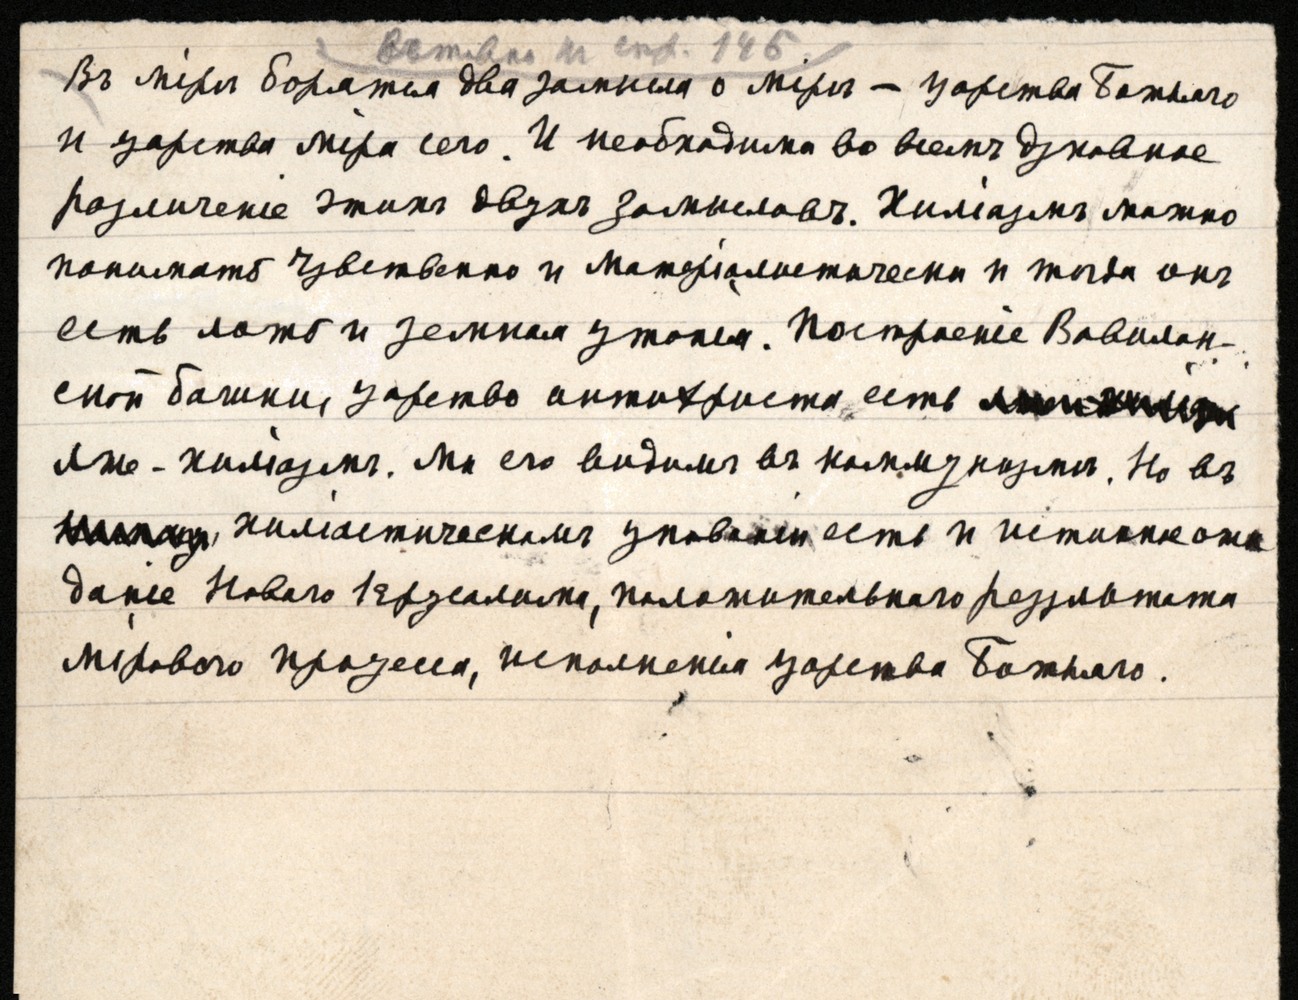 Вставка к стр. 146
Въ мірѣ борятся два замысла о мірѣ — царства Божьяго
и царства міра сего. И необходимо во всемъ духовное
различеніе этихъ двухъ замысловъ. Хиліазмъ можно
понимать чувственно и матеріалистически и тогда онъ
есть ложь и земная утопія. Построеніе Вавилон-
ской башни, царство антихриста есть
лже-хиліазмъ. Мы его видимъ въ коммунизмѣ. Но въ
хиліастическомъ упованіи есть и истинное ожи
даніе Новаго Іерусалима, положительнаго результата
мірового процесса, исполненія царства Божьяго.